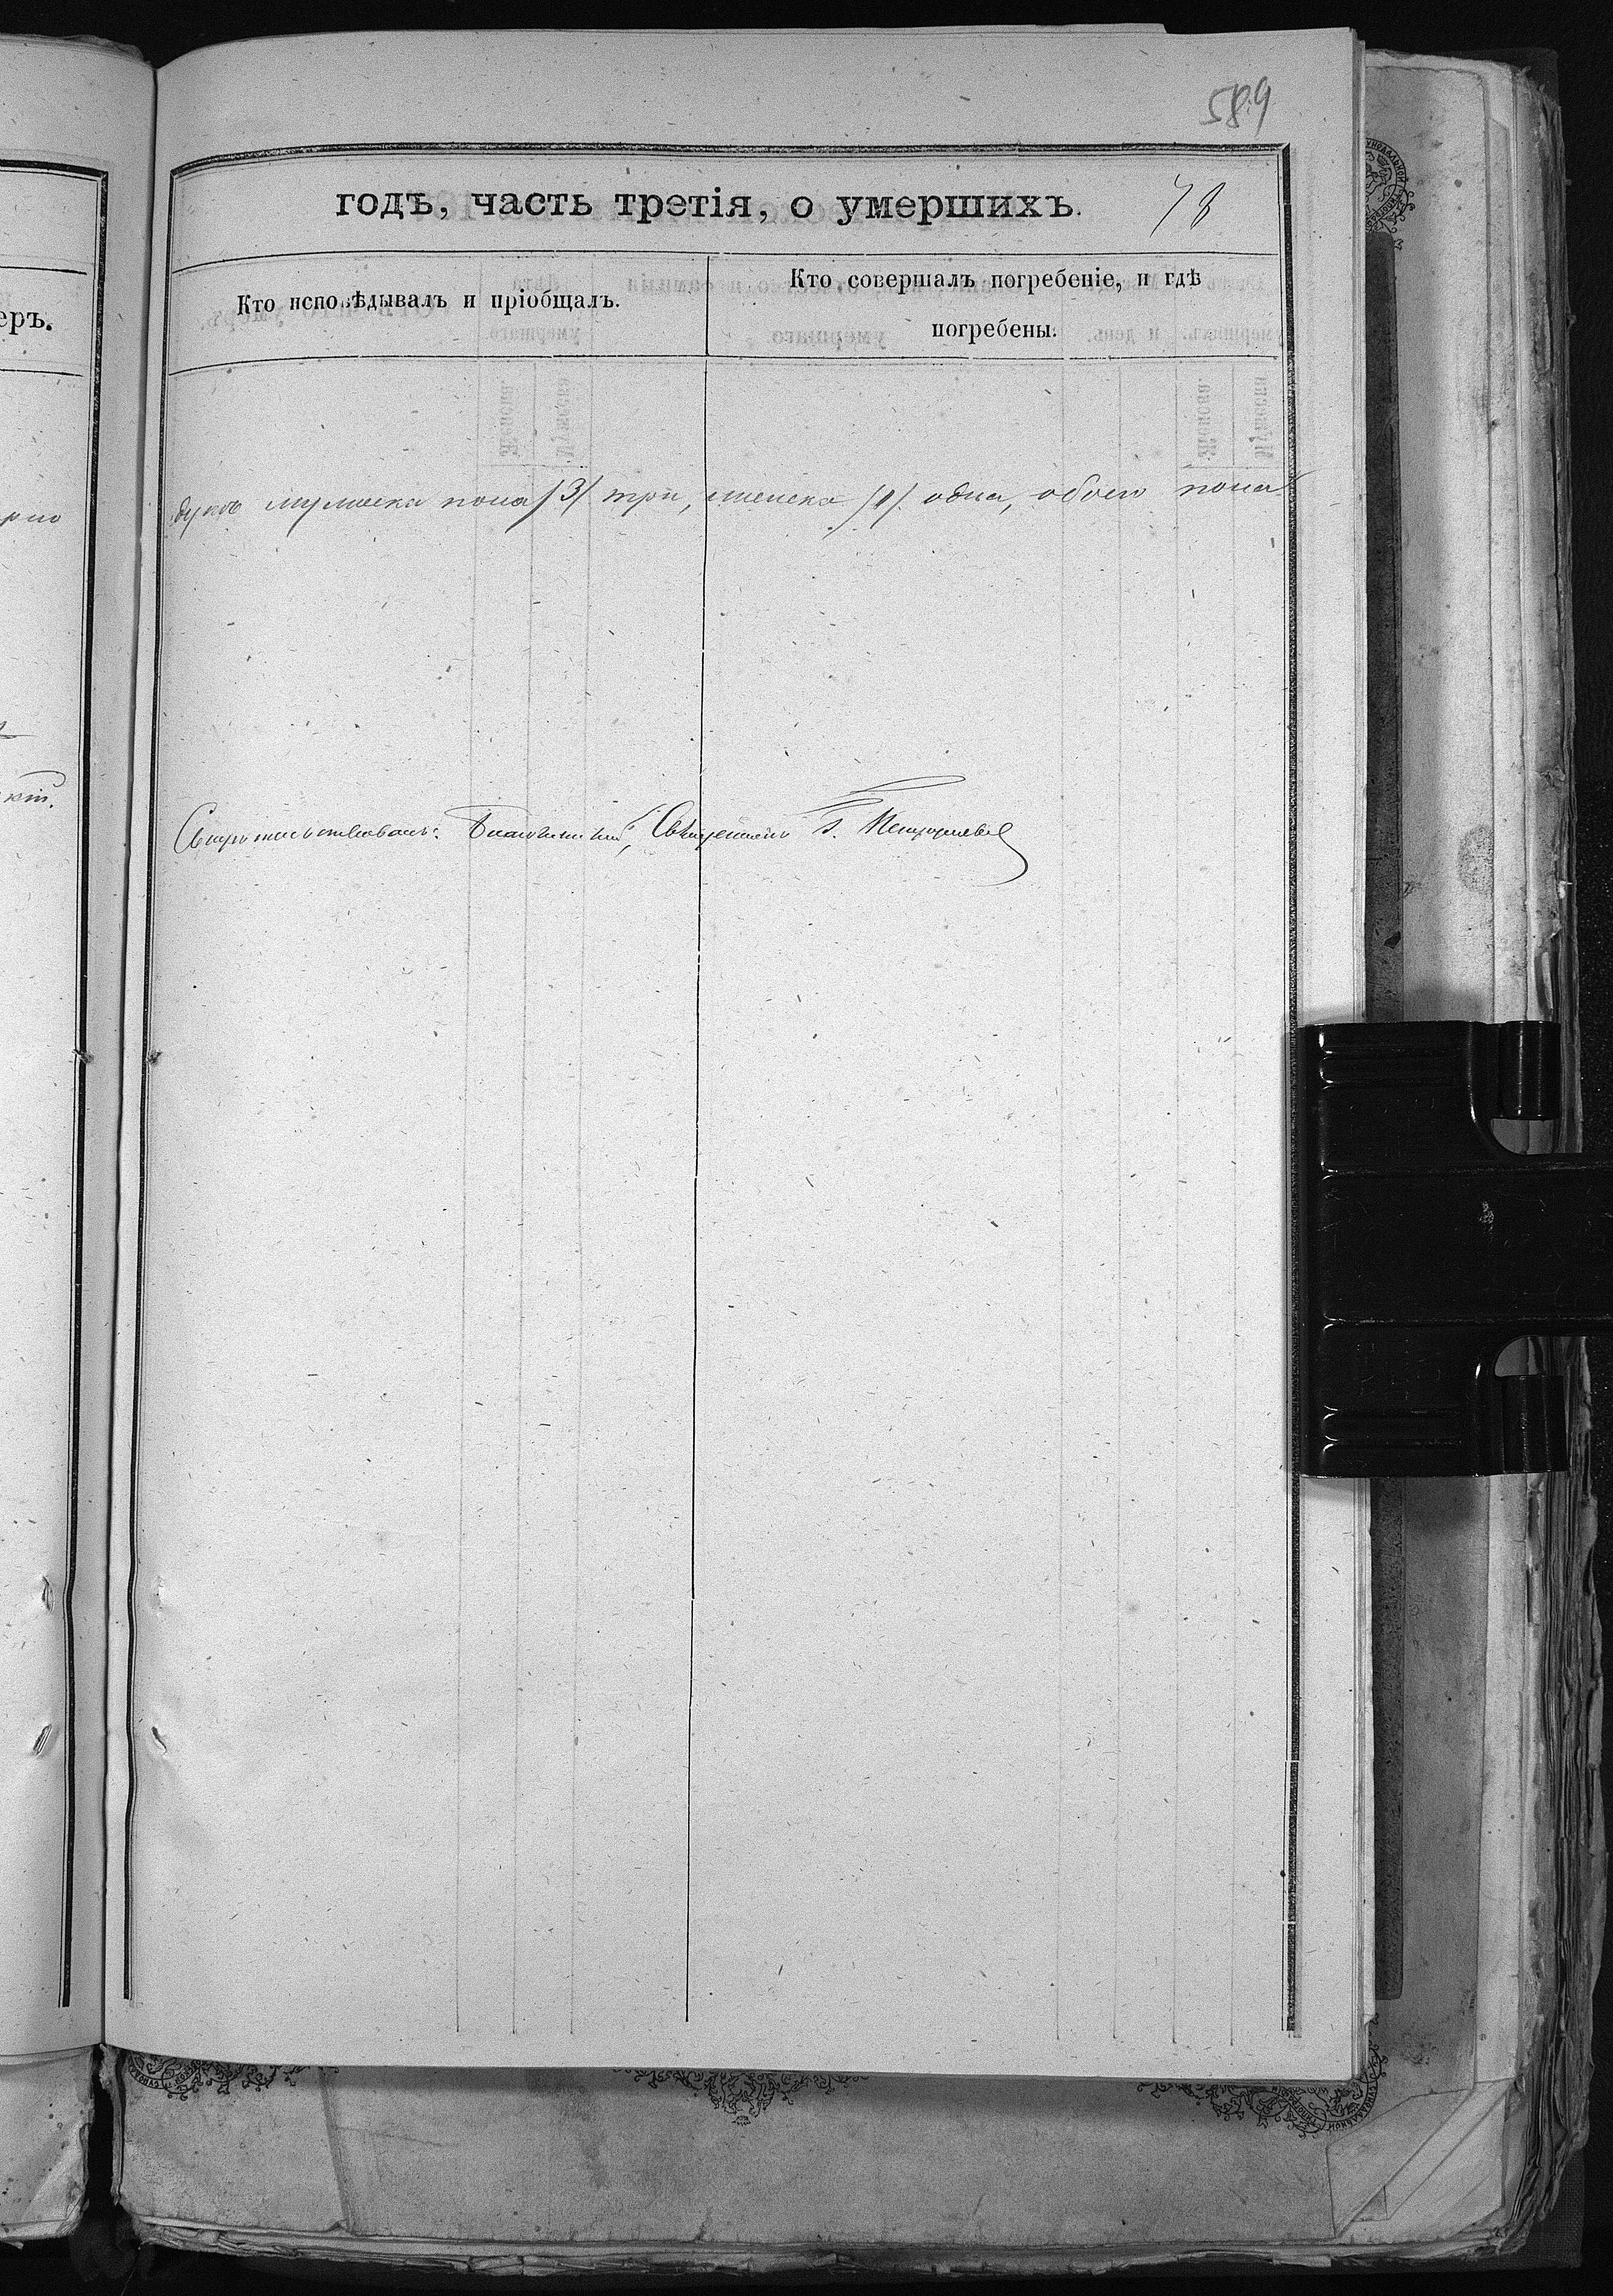 589
годъ, часть третія, о умершихъ.
78
Кто исповѣдывалъ и пріобщалъ.
Кто совершалъ погребеніе, и гдѣ
погребены.
еръ.
мужеска пола /3/ три, женска /1/ одна, обоего пола
кій.
Свидѣтельствовалъ: Благочинный, Священникъ